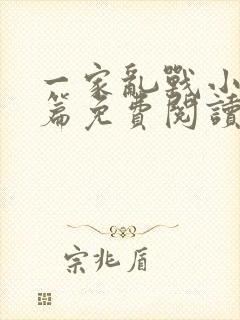 一家亂戰小
篇免費閱讀
宗兆盾